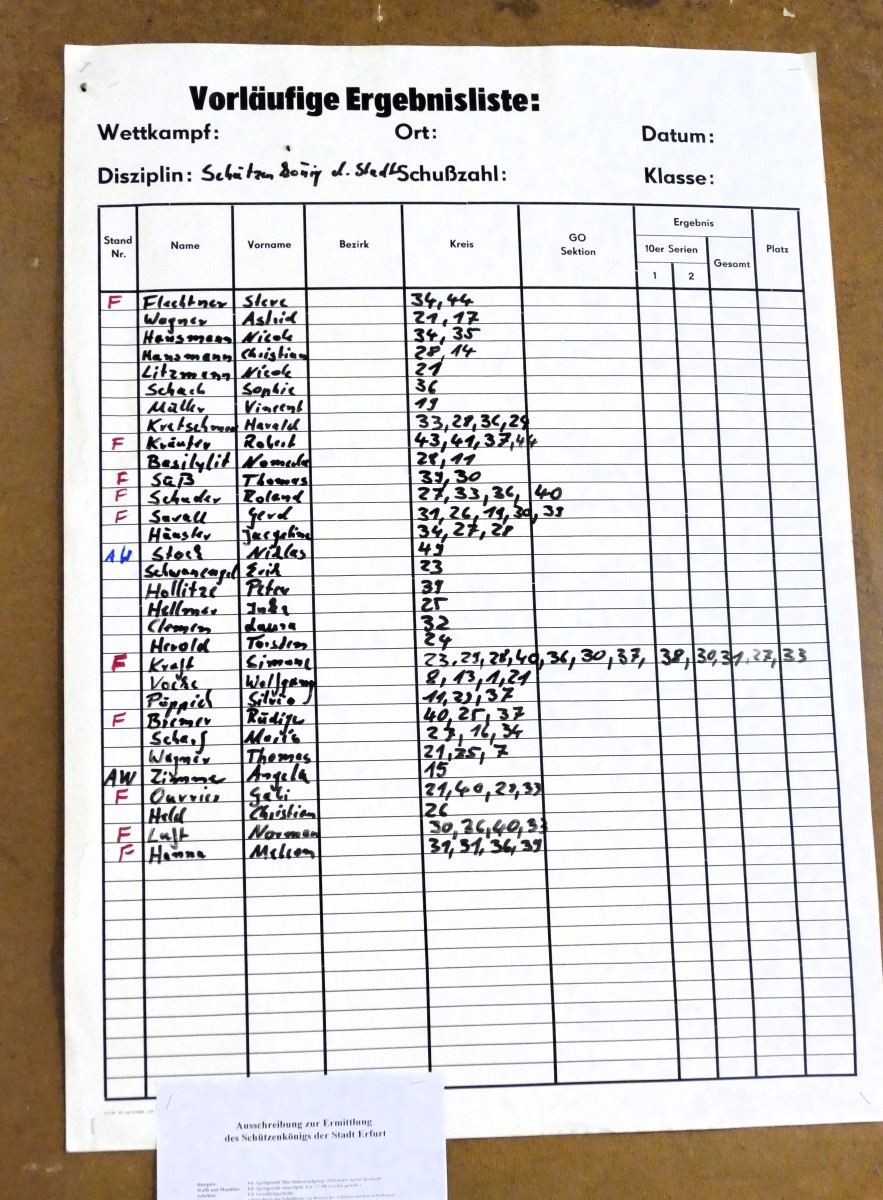 Vorläufige Ergebnisliste:
Wettkampf: Ort: Datum:
Disziplin: Schützenkönig d. Stadt Schußzahl: Klasse:
Stand Nr. Name Vorname Bezirk Kreis GO Sektion Ergebnis 10er Serien 1 2 Gesamt Platz
F Flechtner Steve 34, 44
Wagner Astrid 21, 17
Hausmann Nicole 34, 35
Hausmann Christian 28, 14
Litzmann Nicole 21
Schach Sophie 36
Müller Vincent 19
Harald 33, 28, 36, 29
F Kräuter Robert 43, 41, 37, 44
28, 11
F Saß Thomas 39, 30
F Schader Roland 27, 33, 36, 40
F Savall Gerd 31, 26, 19, 30, 39
Häusler 34, 27, 28
AW Stock Niklas 49
Schwanengel Erik 23
Hollitze Peter 39
Hellmer Inka 25
Clemen Laura 32
Herold Torsten 24
F Kraft Simone 23, 29, 28, 40, 36, 30, 37, 38, 30, 31, 27, 33
Wolfgang 8, 13, 1, 21
Silvio 11, 29, 37
F Bremer Rüdiger 40, 25, 37
Scharf 27, 16, 34
Wagner Thomas 21, 25, 7
AW Angela 15
F Gabi 21, 40, 29, 39
Held Christian 26
F Luft Norman 30, 26, 40, 33
F Hanna 31, 31, 36, 39
Ausschreibung zur Ermittlung
des Schützenkönigs der Stadt Erfurt